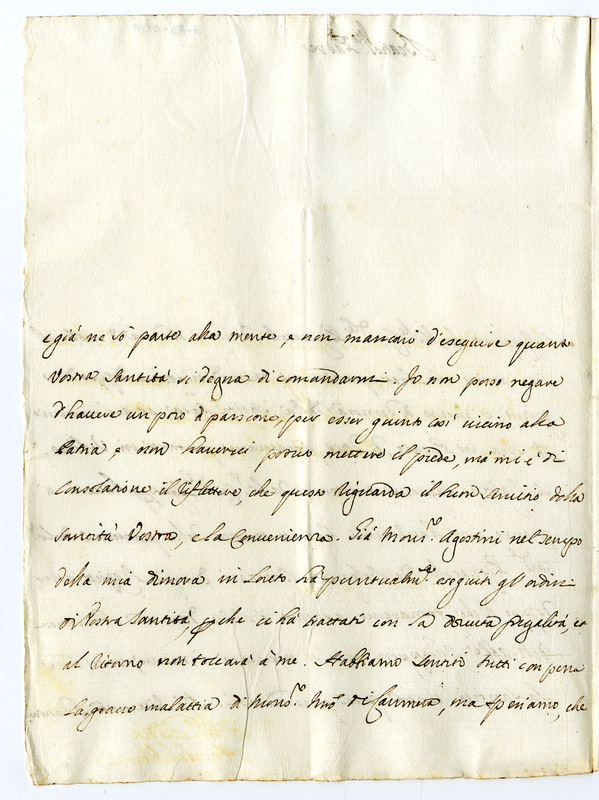 e già ne sò parte alla mente, e non mancarò d'eseguire quanto
Vostra Santità si degna di comandarmi. Io non posso negare
d'havere un poco di passione, per esser giunto così vicino alla
Patria, e non havervi potuto mettere il piede, mà mi è di
consolatione il riflettere, che questo riguarda il buon servitio della
Santità Vostra, e la Convenienza. Già Mons.re Agostini nel tempo
della mia dimora in Loreto hà puntualm.te eseguiti gl'ordini
di Vostra Santità, che ci hà trattati con la dovuta, et
al ritorno non toccarà à me. Habbiamo sentito tutti con pena
la grave malattia di Mons.re di, ma speriamo, che